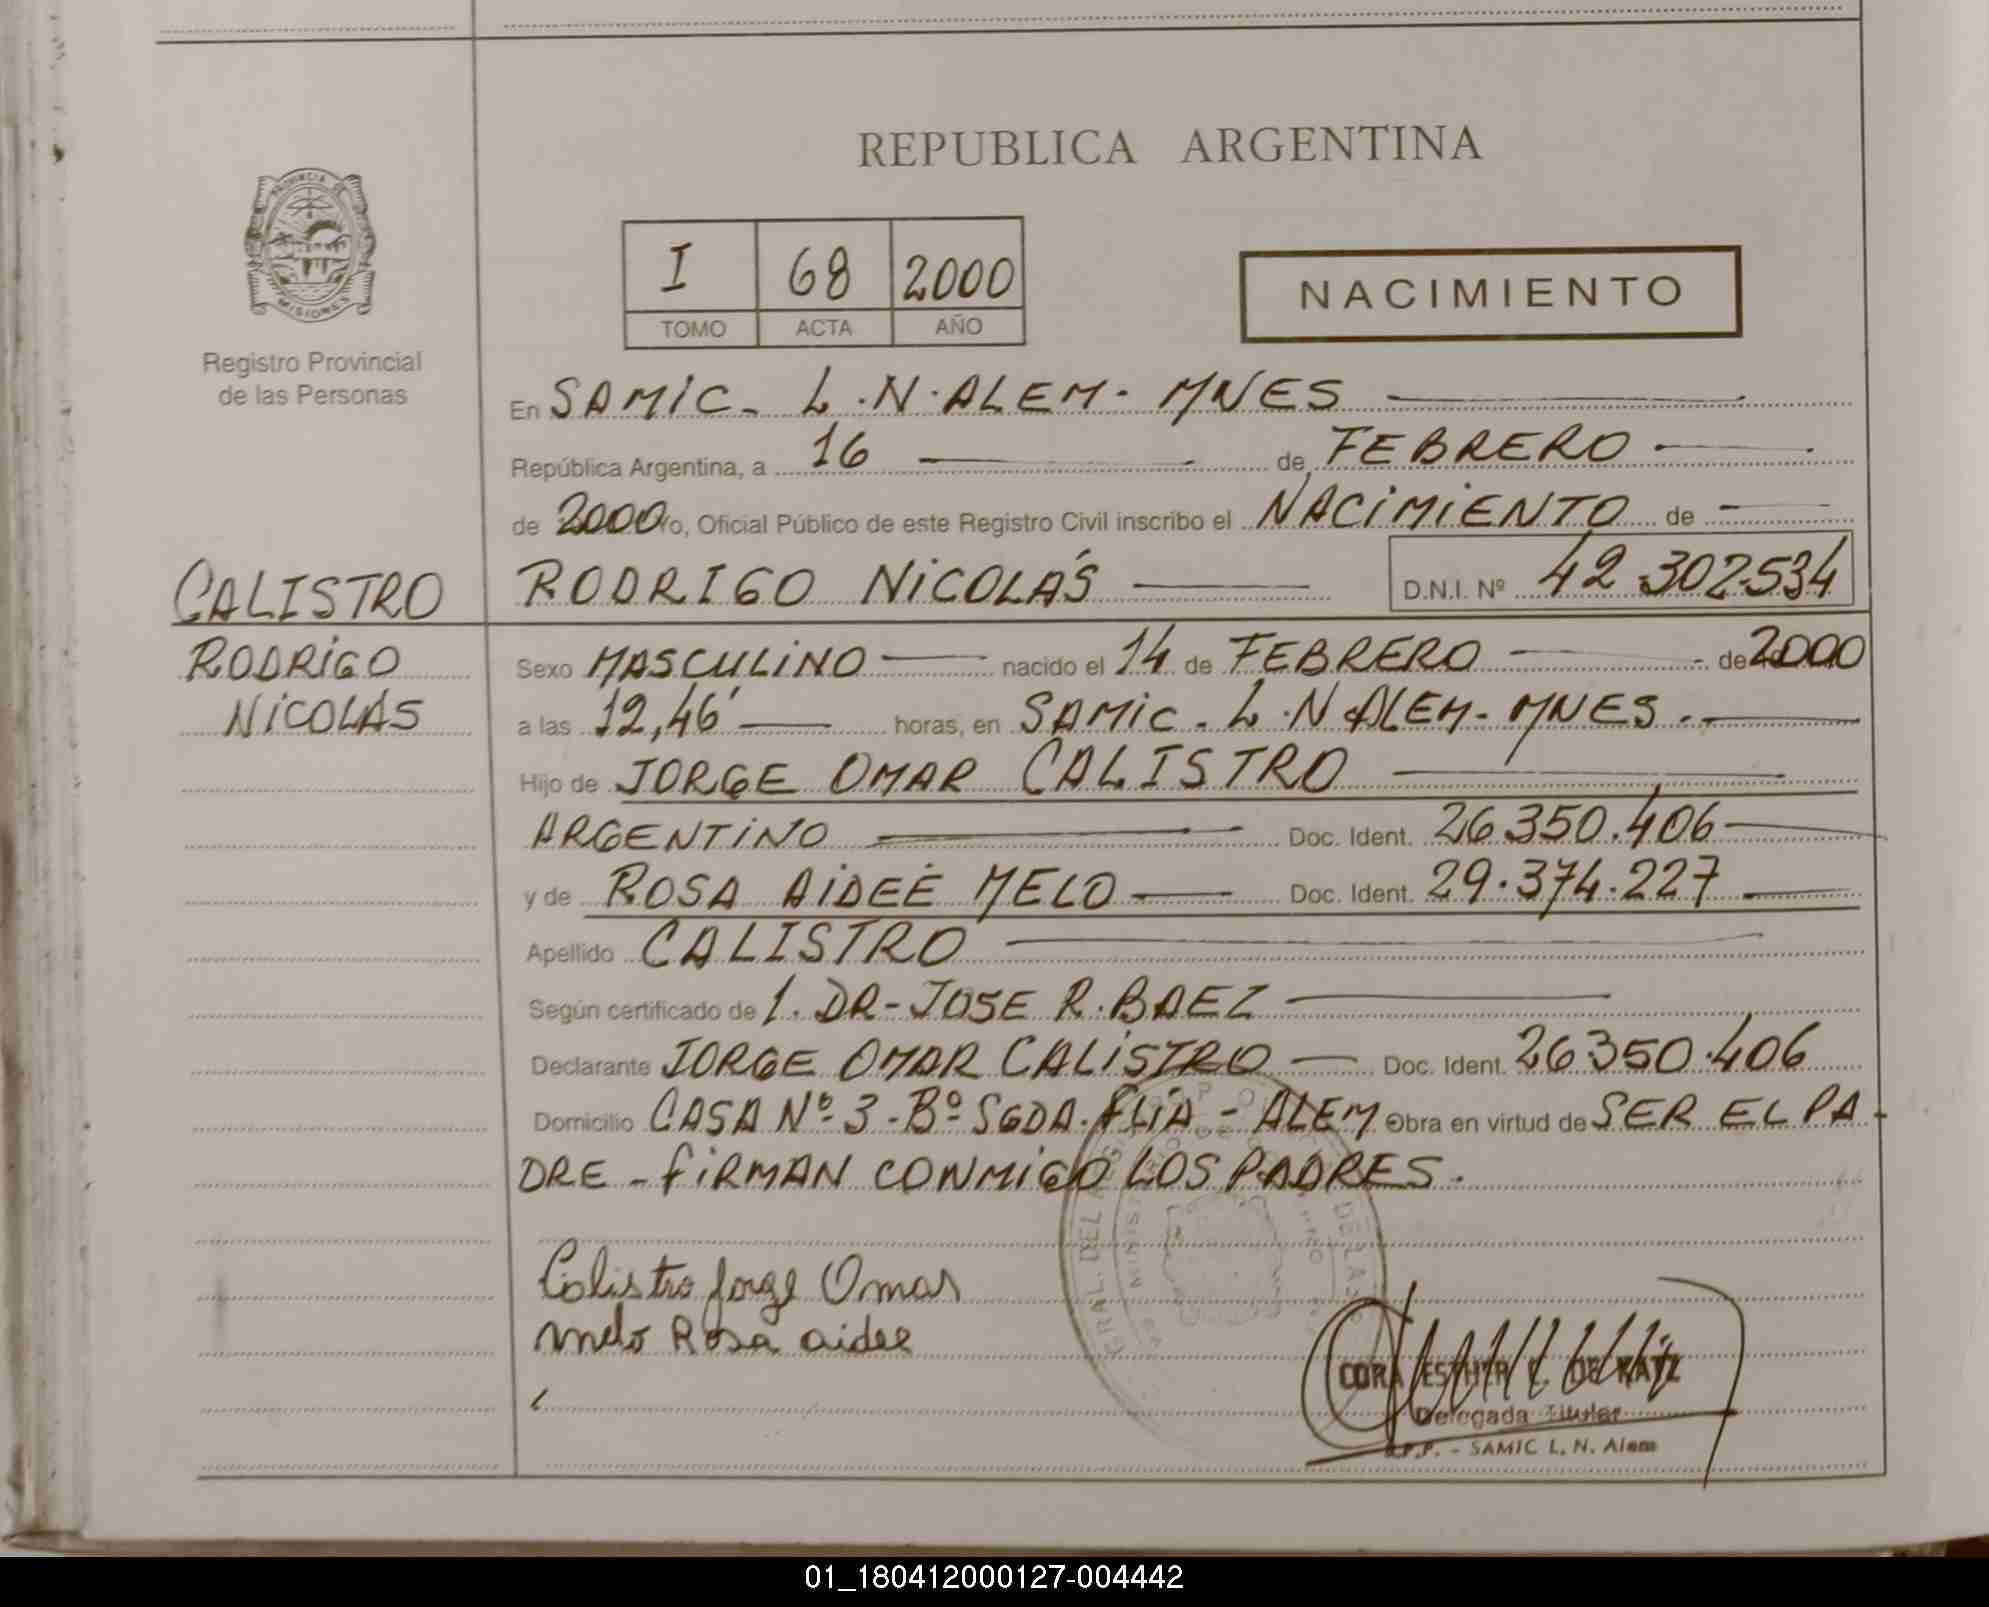 REPUBLICA ARGENTINA
PROVINCIA DE
MISIONES
Registro Provincial
de las Personas
I 68 2000
TOMO ACTA AÑO
NACIMIENTO
En SAMIC. L.N.ALEM. MNES
República Argentina, a 16 de FEBRERO
de 2000 Yo, Oficial Público de este Registro Civil inscribo el NACIMIENTO de
CALISTRO
RODRIGO
NICOLÁS
RODRIGO NICOLÁS D.N.I. Nº 42.302.534
Sexo MASCULINO nacido el 14 de FEBRERO de 2000
a las 12,46' horas, en SAMIC. L.N ALEM. MNES.
Hijo de JORGE OMAR CALISTRO
ARGENTINO Doc. Ident. 26.350.406
y de ROSA AIDEÉ MELO Doc. Ident. 29.374.227
Apellido CALISTRO
Según certificado de 1. DR-JOSE R.BAEZ
Declarante JORGE OMAR CALISTRO Doc. Ident. 26.350.406
Domicilio CASA Nº 3-Bº SGDA.FLIA - ALEM Obra en virtud de SER EL PA-
DRE - FIRMAN CONMIGO LOS PADRES.
Calistro Jorge Omar
Melo Rosa aidee
CORA ESTHER DE KATZ
Delegada Titular
R.P.P. - SAMIC L. N. Alem
01_180412000127-004442